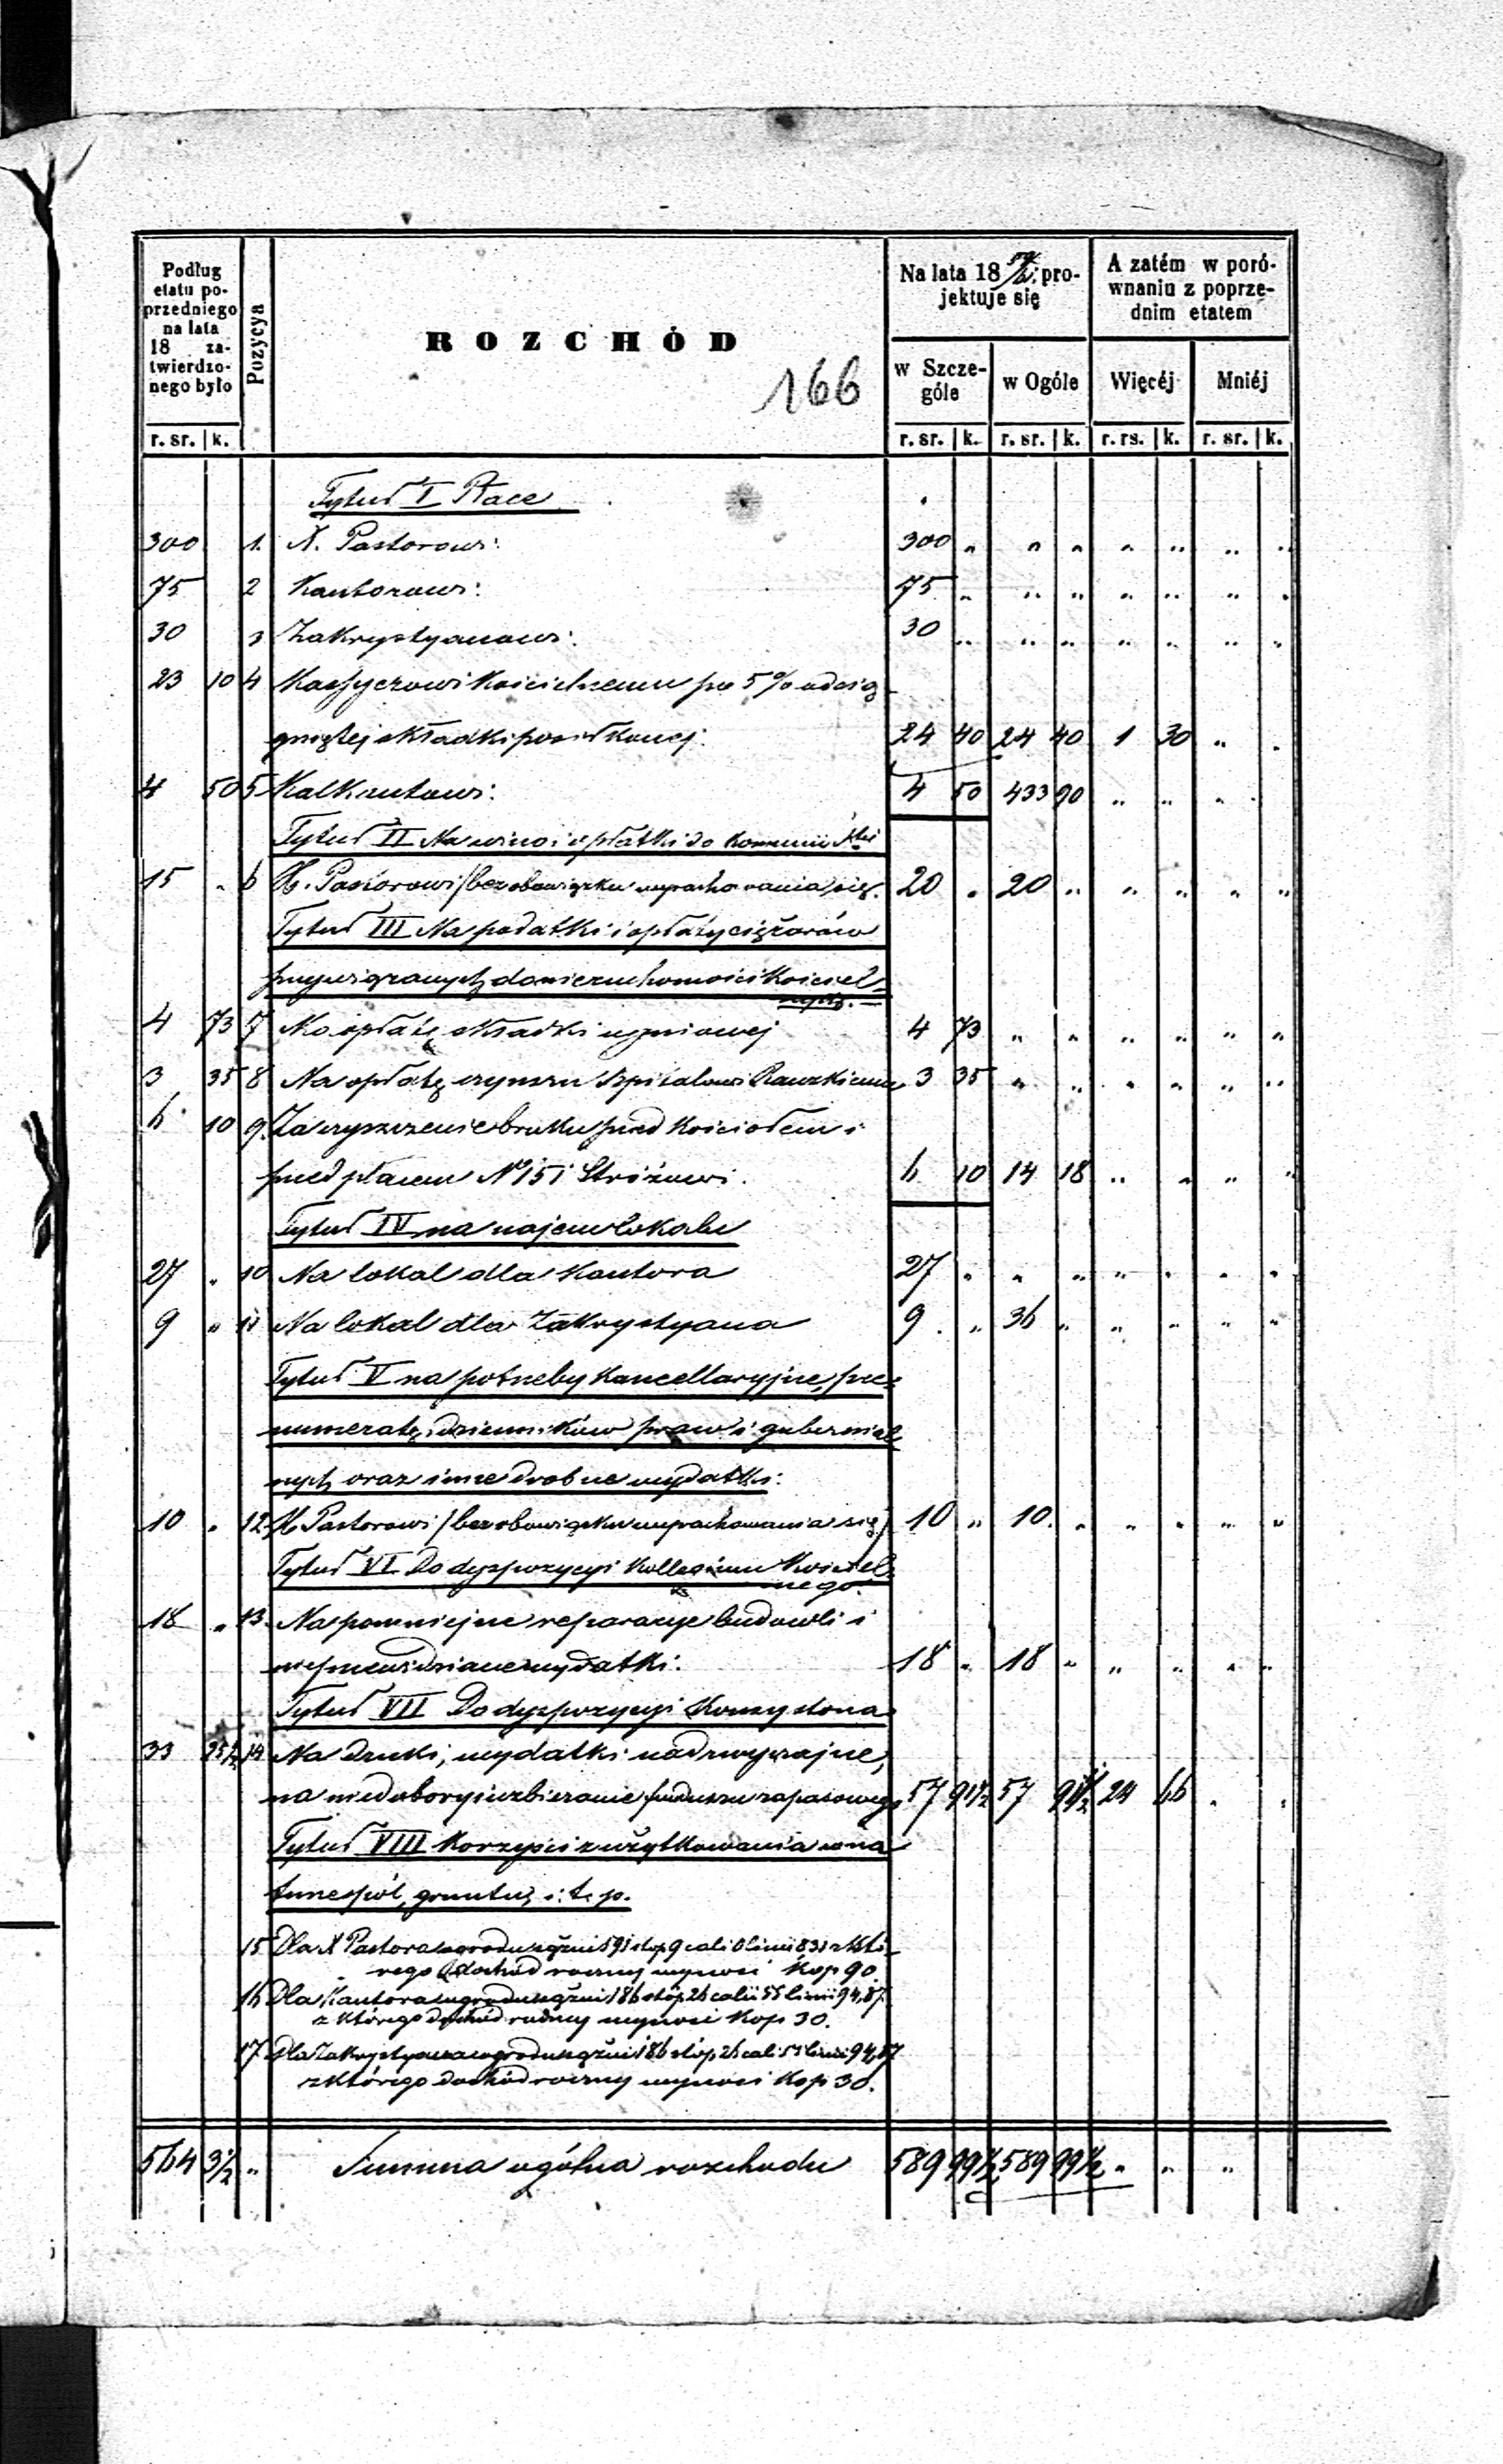 Podług etatu poprzedniego na lata 18 zatwierdzonego było
Pozycya
ROZCHÓD
166
Na lata 18 projektuje się
A zatém w porównaniu z poprzednim etatem
w Szczególe
w Ogóle
Więcéj
Mniéj
r. sr. k. r. sr. k. r. sr. k. r. rs. k. r. sr. k.
Tytuł I Płace
300 1. X. Pastorowi: 300 " " " " " " "
75 2 Kantorowi: 75 " " " " " " "
30 3 Zakrystyanowi: 30 " " " " " " "
23 10 4 Kassyerowi Kościelnemu po 5% od ścią
gniętej składki posiłkowej. 24 40 24 40 1 30 " "
4 50 5 Kalkantowi: 4 50 433 90 " " " "
Tytuł II Na wino i opłatki do Kommunii Stej
15 " 6 X. Pastorowi /bez obowiązku wyrachowania się. 20 " 20 " " " " "
Tytuł III Na podatki i opłaty ciężarów
przywiązanych do nieruchomości Kościel-
nych.
4 73 7 Na opłatę składki ogniowej 4 73 " " " " " "
3 35 8 Na opłatę czynszu Szpitalowi Rawskiemu 3 35 " " " " " "
6 10 9. Za czyszczenie bruku przed Kościołem i
przed placem No 151 Stróżowi. 6 10 14 18 " " " "
Tytuł IV na najem lokalu
27 " 10 Na lokal dla Kantora 27 " " " " " " "
9 " 11 Na lokal dla Zakrystyana 9 " 36 " " " " "
Tytuł V na potrzeby Kancellaryjne, pre-
numeratę dzienników praw i gubernial
nych oraz inne drobne wydatki:
10 " 12 X. Pastorowi /bez obowiązku wyrachowania się/ 10 " 10 " " " " "
Tytuł VI Do dyspozycyi Kollegium Kościel-
nego.
18 " 13. Na pomniejsze reparacye budowli i
nieprzewidziane wydatki. 18 " 18 " " " " "
Tytuł VII Do dyspozycyi Konsystorza
33 25½ 14 Na druki, wydatki nadzwyczajne,
na niedobory i uzbieranie funduszu zapasowego 57 91½ 57 91½ 24 66 " "
Tytuł VIII Korzyści z użytkowania w na
turze pól, gruntu, i. t. p.
15 Dla X Pastora ogrodu 831 z któ-
rego dochód roczny wynosi Kop 90.
16 Dla Kantora ogrodu 186 stóp 26 cali 55 linii 94,87
z którego dochód roczny wynosi Kop 30.
17 Dla Zakrystyana ogrodu 186 stóp 26 cali 55 linii 94,87
z którego dochód roczny wynosi Kop 30.
564 3½ " Summa ogólna rozchodu 589 99½ 589 99½ " " "